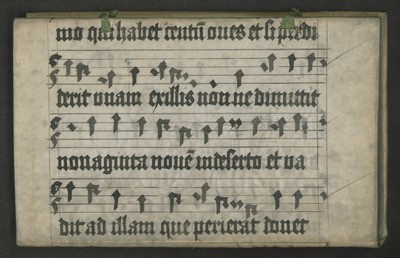 mo qui habet centū oues et si perdi
derit vnam ex illis nōn ne dimittit
nonaginta nouē in deserto et va
dit ad illam que perierat donec